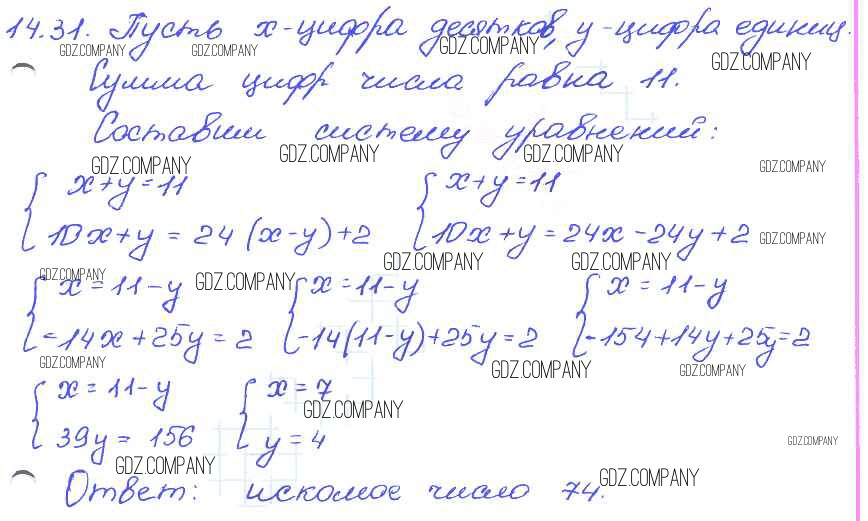 14.31. Пусть x-цифра десятков, y-цифра единиц.
GDZ.COMPANY GDZ.COMPANY GDZ.COMPANY GDZ.COMPANY
Сумма цифр числа равна 11.
Составим систему уравнений:
GDZ.COMPANY GDZ.COMPANY GDZ.COMPANY GDZ.COMPANY
x+y=11 x+y=11
10x+y = 24(x-y)+2 10x+y = 24x-24y+2 GDZ.COMPANY
GDZ.COMPANY GDZ.COMPANY
GDZ.COMPANY GDZ.COMPANY
x=11-y x=11-y x=11-y
-14x+25y=2 -14(11-y)+25y=2 -154+14y+25y=2
GDZ.COMPANY GDZ.COMPANY GDZ.COMPANY
x=11-y x=7
GDZ.COMPANY
39y=156 y=4 GDZ.COMPANY
GDZ.COMPANY GDZ.COMPANY
Ответ: искомое число 74.